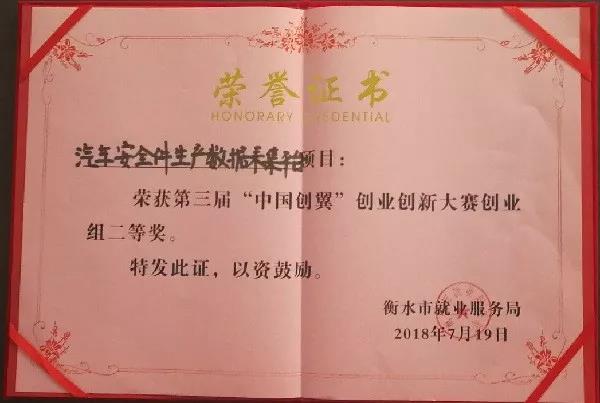 荣誉证书
HONORARY CREDENTIAL
汽车安全件生产数据采集项目：
荣获第三届“中国创翼”创业创新大赛创业
组二等奖。
特发此证，以资鼓励。
衡水市就业服务局
2018年7月19日